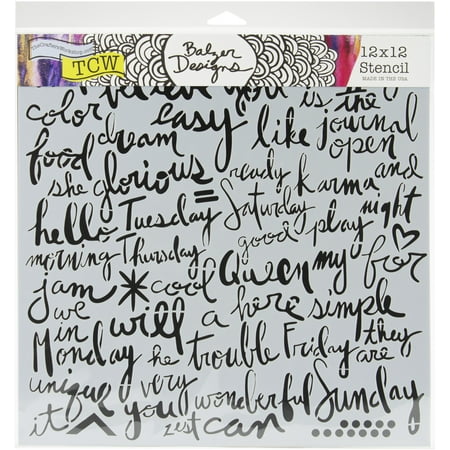 TheCraftersWorkshop.com
TCW
Balzer Designs
12x12
Stencil
MADE IN THE USA
you is the
color easy like journal
food dream open
she glorious = ready karma and
hello Tuesday Saturday night
morning Thursday good play
jam * cool Queen my for
we in will a here simple
Monday he trouble Friday they are
unique very wonderful Sunday
it you zest can